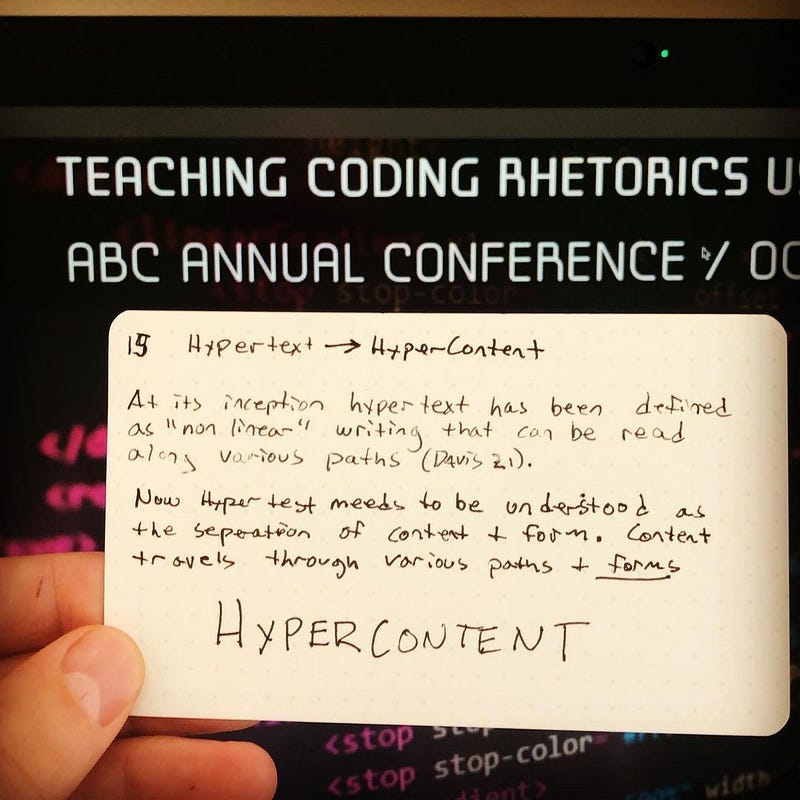 TEACHING CODING RHETORICS U
ABC ANNUAL CONFERENCE / OC
stop-color
offset
15 Hypertext → HyperContent
At its inception hypertext has been defined
as "non linear" writing that can be read
along various paths (DAVIS 21).
Now Hyper test meeds to be understood as
the seperation of content + form. Content
travels through various paths + forms
HYPERCONTENT
<stop
<stop stop-color
width